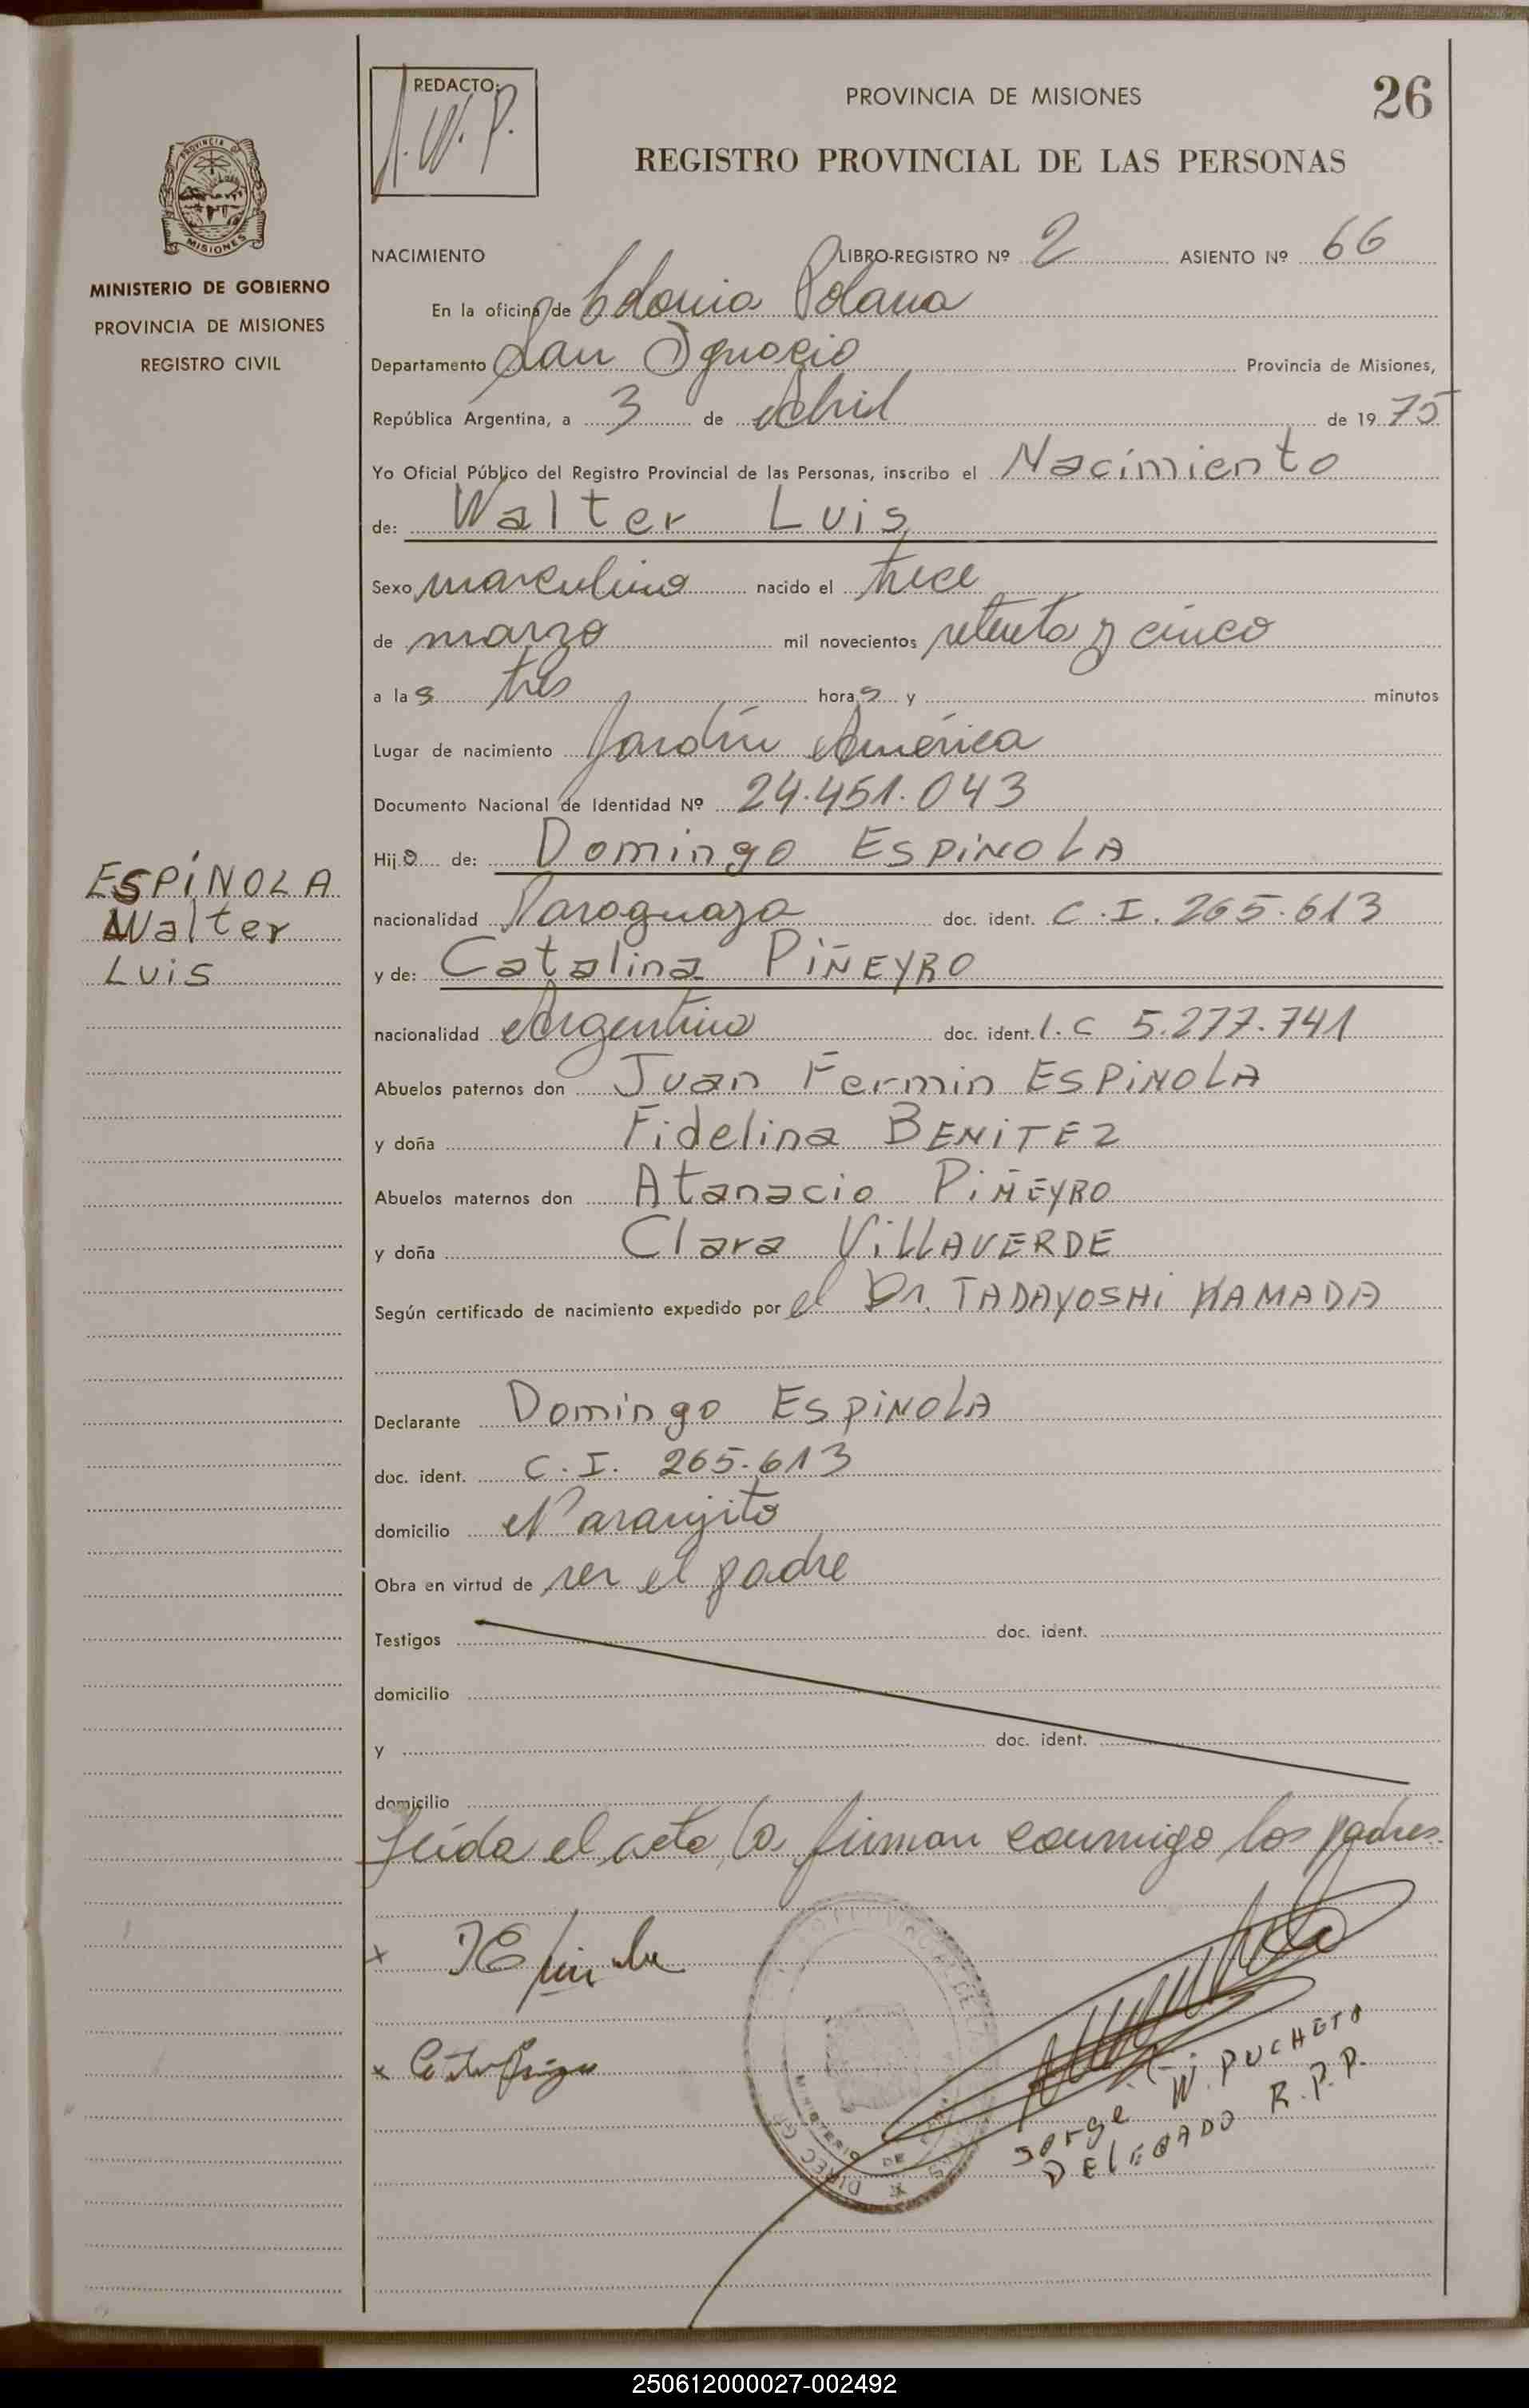 26
REDACTO:
J. W. P.
PROVINCIA DE MISIONES
REGISTRO PROVINCIAL DE LAS PERSONAS
PROVINCIA DE
MISIONES
MINISTERIO DE GOBIERNO
PROVINCIA DE MISIONES
REGISTRO CIVIL
NACIMIENTO LIBRO-REGISTRO Nº 2 ASIENTO Nº 66
En la oficina de Colonia Polana
Departamento San Ignacio Provincia de Misiones,
República Argentina, a 3 de Abril de 1975
Yo Oficial Público del Registro Provincial de las Personas, inscribo el Nacimiento
de: Walter Luis
Sexo masculino nacido el trece
de marzo mil novecientos setenta y cinco
a las tres horas y minutos
Lugar de nacimiento Jardín América
Documento Nacional de Identidad Nº 24.451.043
Hijo de: Domingo ESPINOLA
ESPÍNOLA
Walter
Luis
nacionalidad Paraguaya doc. ident. C.I. 265.613
y de: Catalina PIÑEYRO
nacionalidad Argentina doc. ident. L.C 5.277.741
Abuelos paternos don Juan Fermin ESPINOLA
y doña Fidelina BENITEZ
Abuelos maternos don Atanacio PIÑEYRO
y doña Clara VILLAVERDE
Según certificado de nacimiento expedido por el Dr. TADAYOSHI KAMADA
Declarante Domingo ESPINOLA
doc. ident. C.I. 265.613
domicilio Naranjito
Obra en virtud de ser el padre
Testigos doc. ident.
domicilio
y doc. ident.
domicilio
Leída el acta, la firman conmigo los padres.
x
x
MINISTERIO DE
Jorge W. PUCHETA
DELEGADO R.P.P.
250612000027-002492